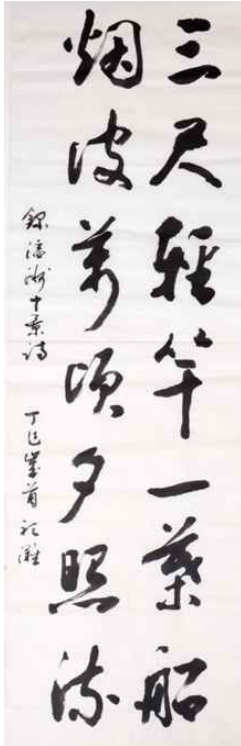 三尺輕竿一葉船
烟波萬頃夕照流
錄瀛洲十景詩 丁巳歲首